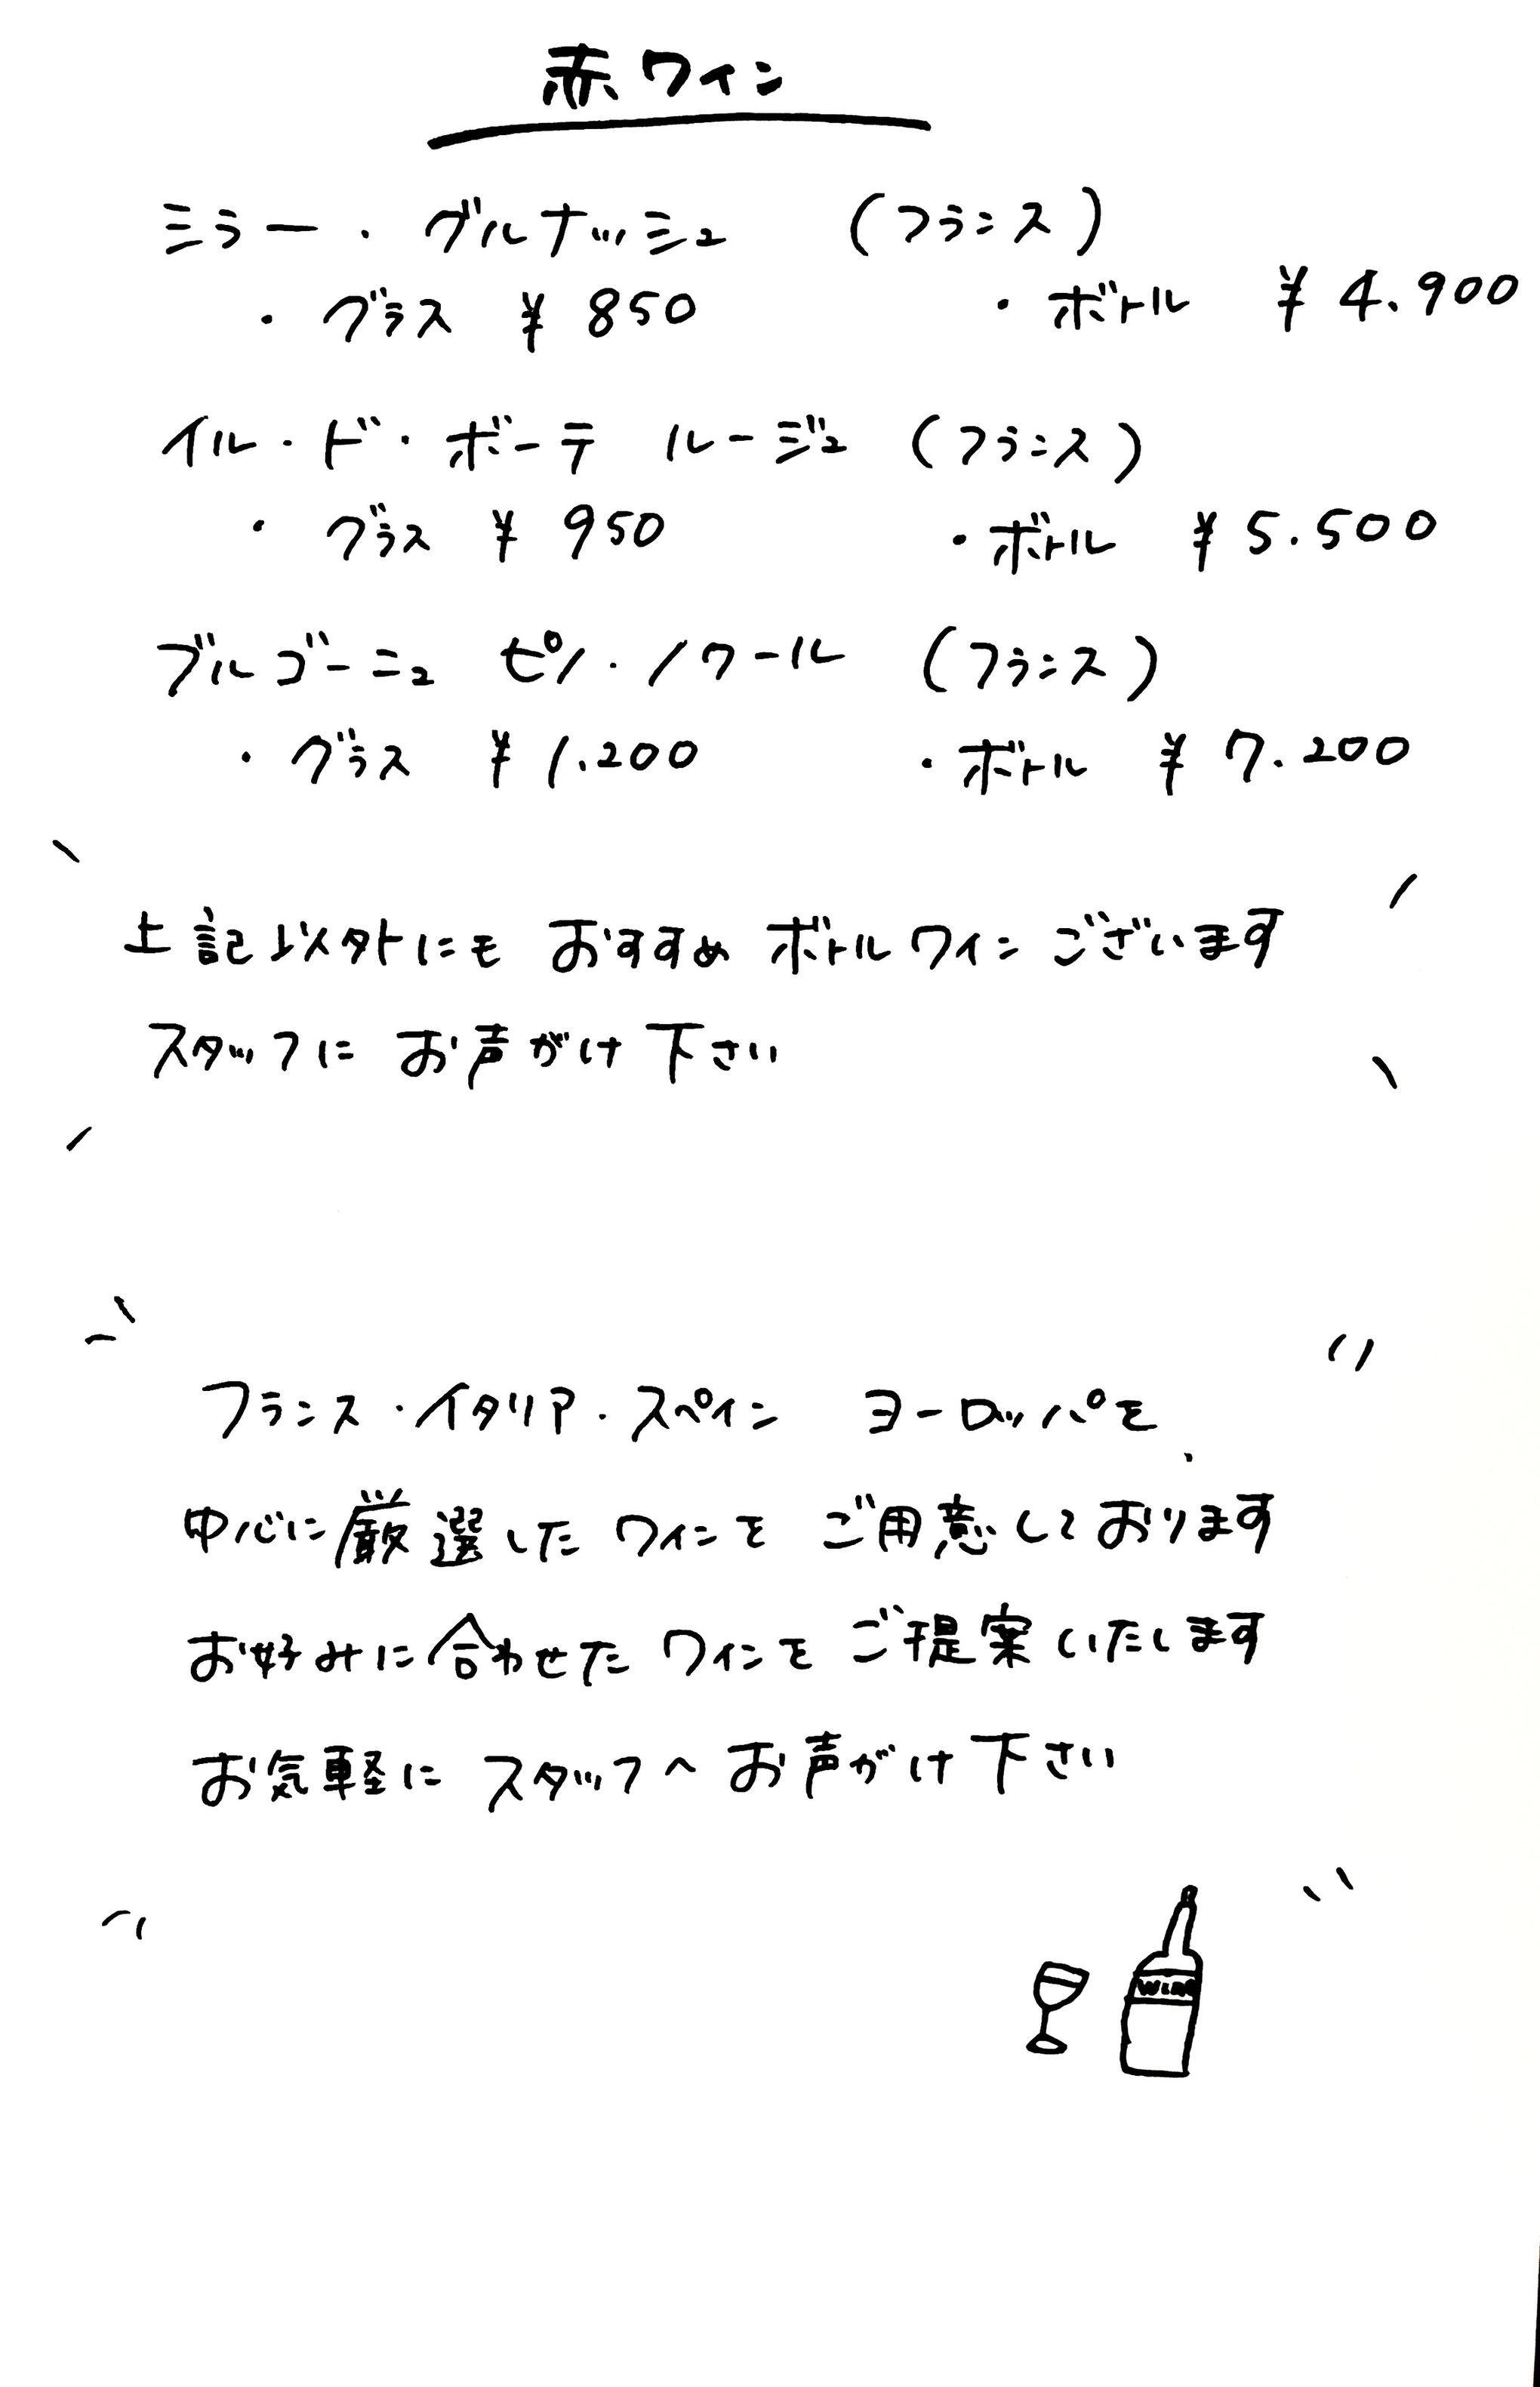 赤ワイン
ミラー・グルナッシュ (フランス)
・グラス ¥850 ・ボトル ¥4.900
イル・ド・ボーテ ルージュ (フランス)
・グラス ¥950 ・ボトル ¥5.500
ブルゴーニュ ピノ・ノワール (フランス)
・グラス ¥1.200 ・ボトル ¥7.200
上記以外にも おすすめ ボトルワイン ございます
スタッフに お声がけ下さい
フランス・イタリア・スペイン ヨーロッパを
中心に厳選した ワインを ご用意しております
お好みに合わせた ワインを ご提案いたします
お気軽に スタッフへ お声がけ下さい